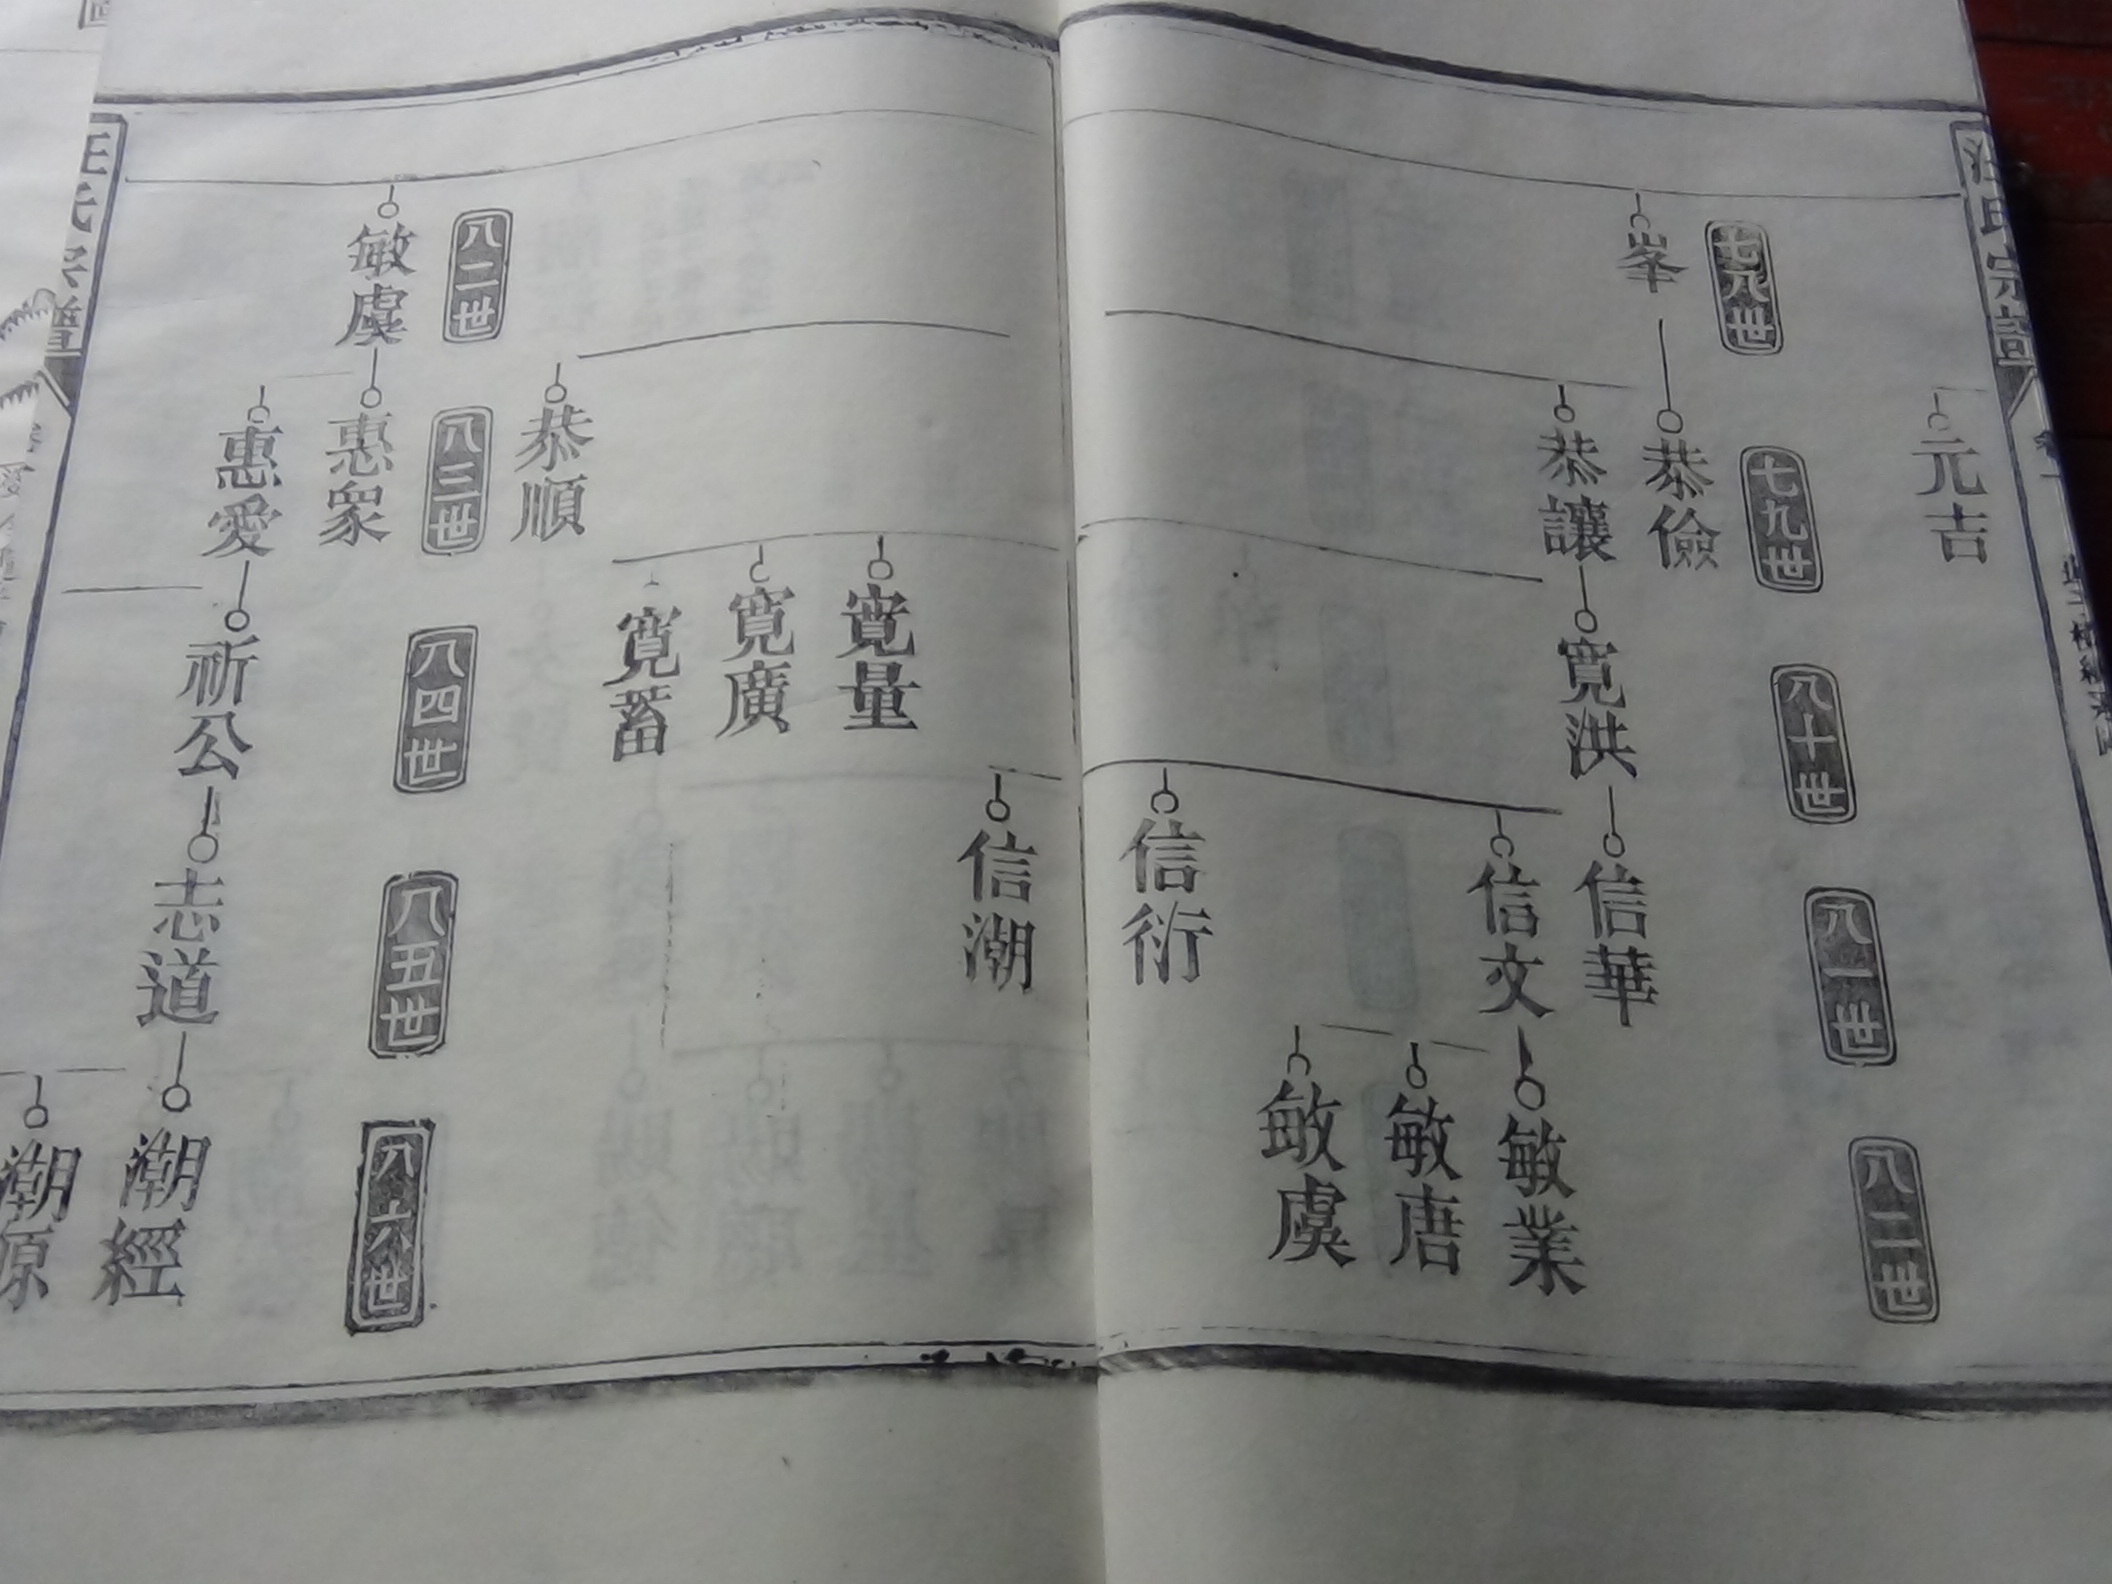 汪氏宗譜
元吉
七八世
七九世
八十世
八一世
八二世
峯
恭儉
恭讓
寬洪
信華
信文
敏業
敏唐
敏虞
信衍
信潮
寬量
寬廣
寬蓄
恭順
八二世
八三世
八四世
八五世
八六世
敏虞
惠衆
惠愛
祈公
志道
潮經
潮源
汪氏宗譜